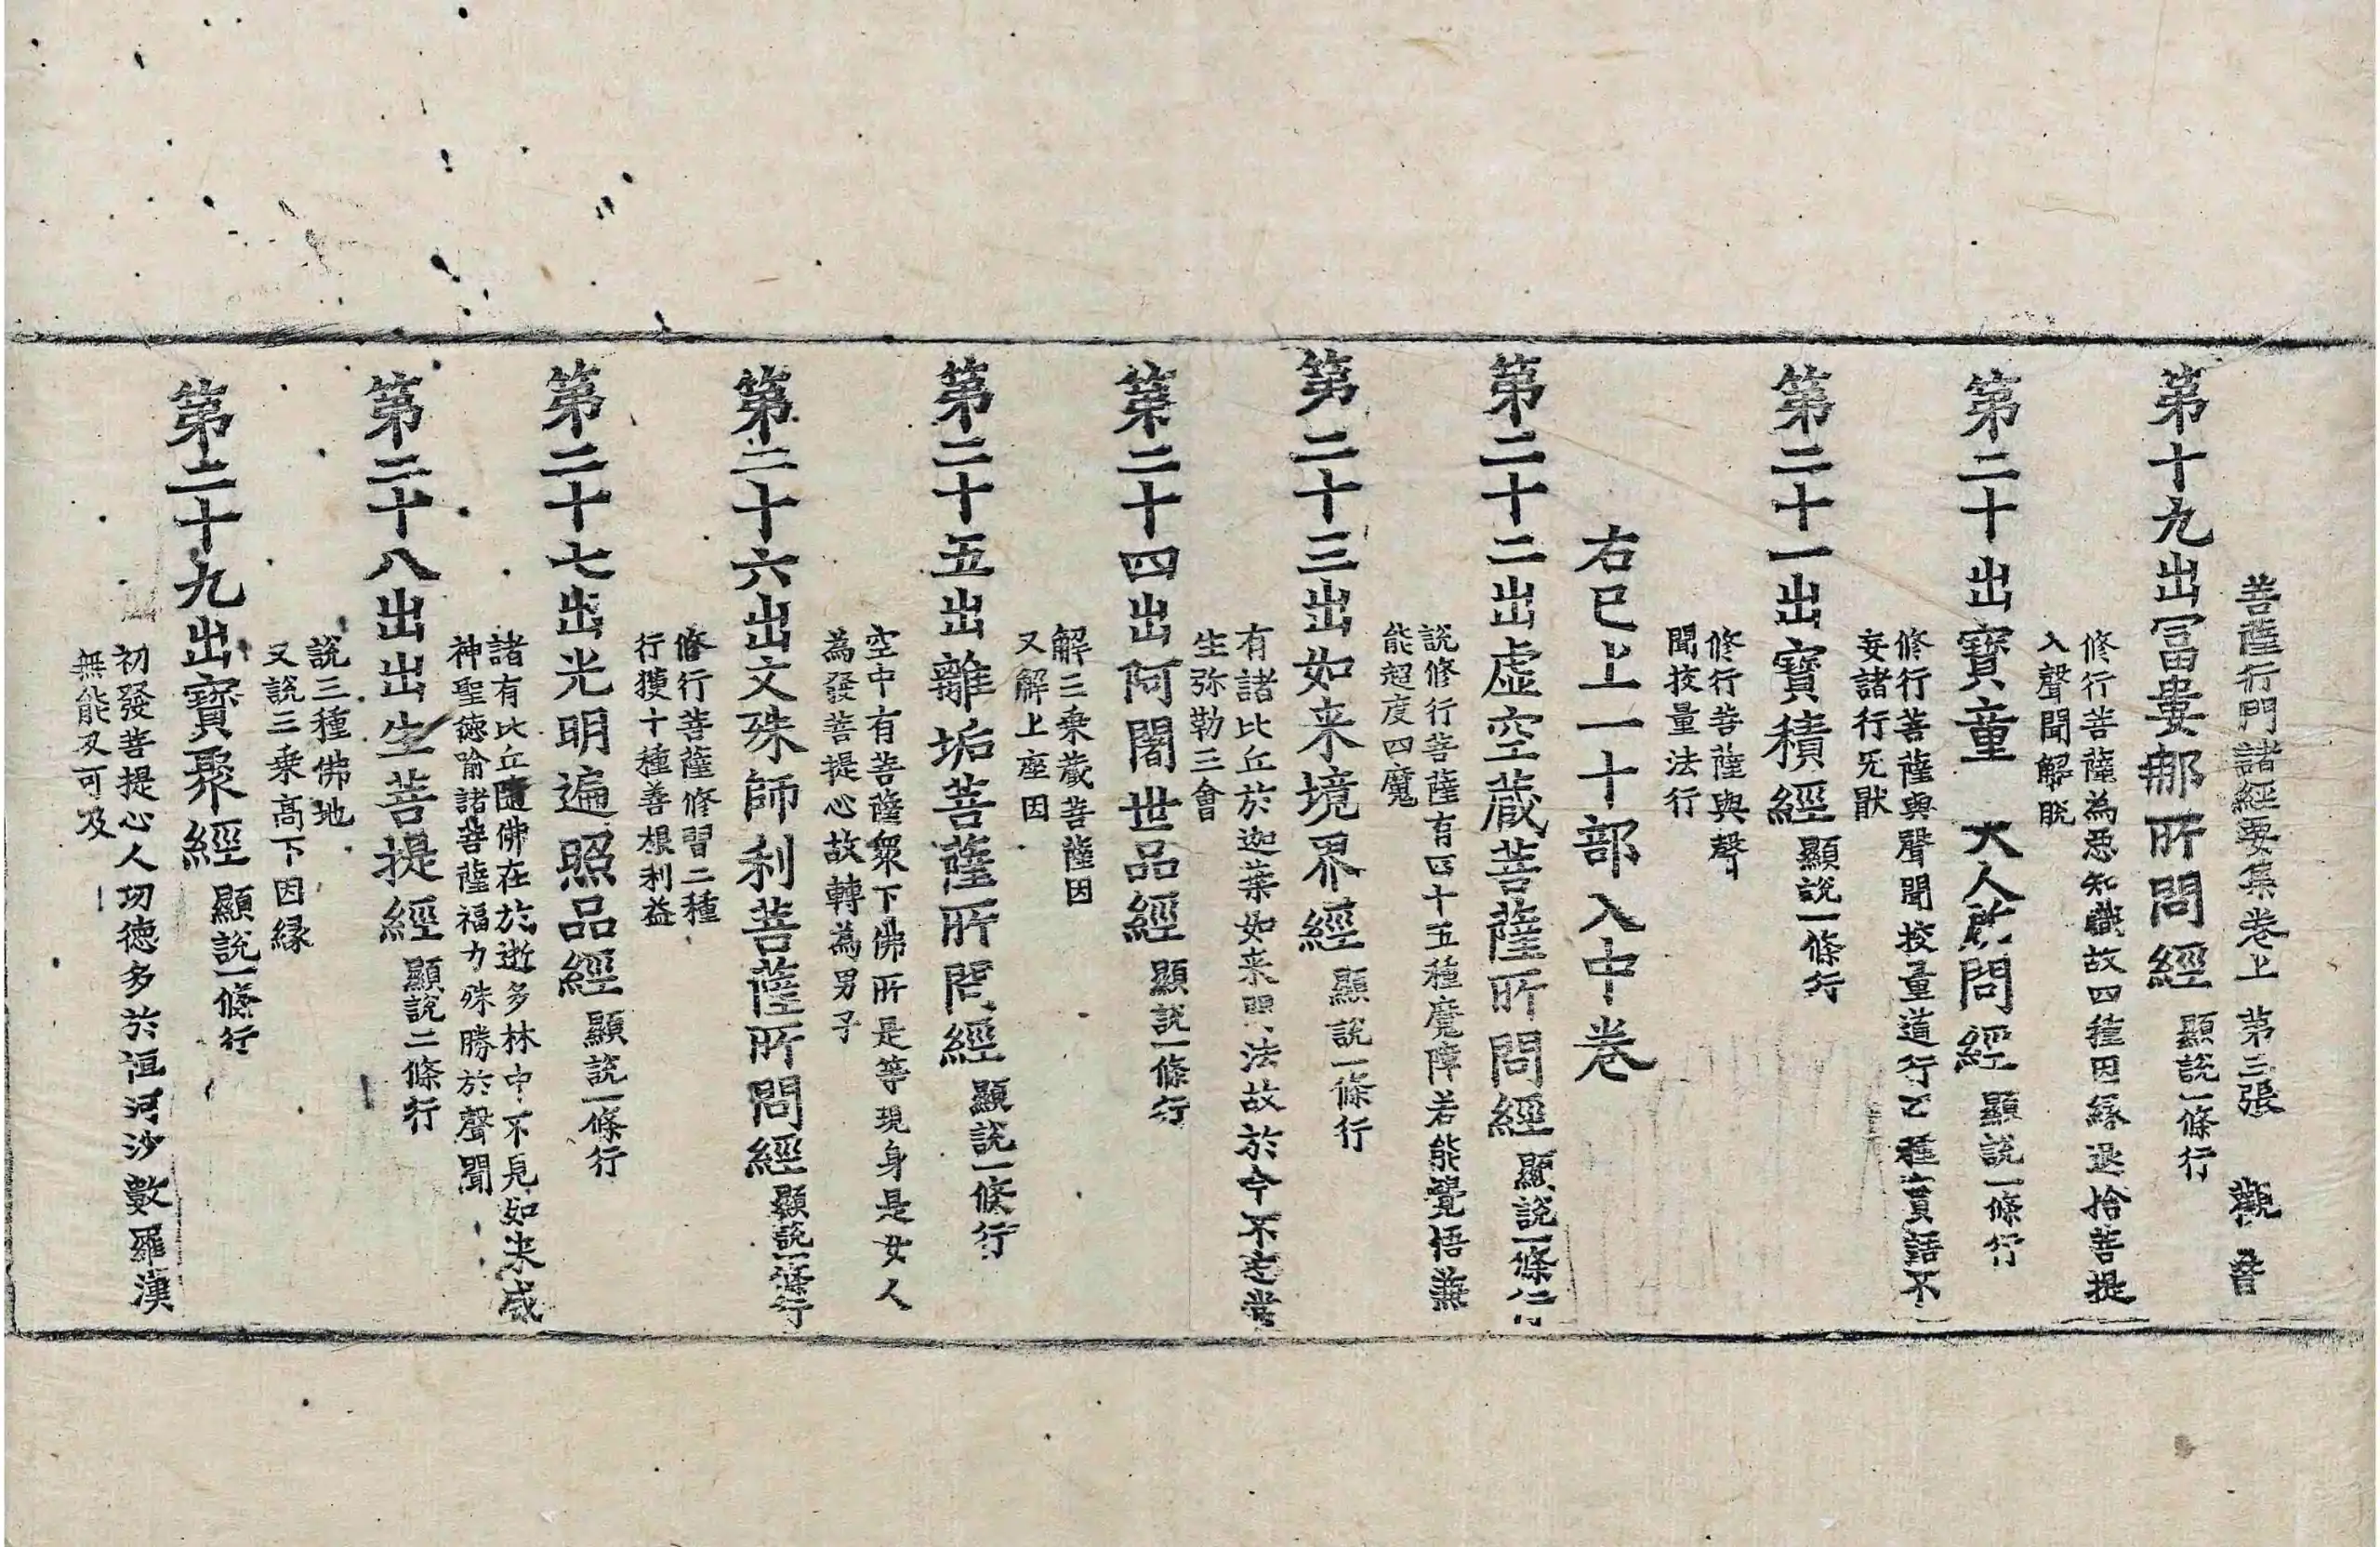 菩薩行門諸經要集卷上 第三張 觀 音
第十九出冨婁那所問經 顯說一條行
修行菩薩為悪知識故四種因縁退捨菩提
入聲聞解脱
第二十出寶童 大人所問經 顯說一條行
修行菩薩與聲聞挍量道行乙種賣語不
妄諸行无猒
第二十一出寶積經 顯說一條行
修行菩薩與聲
聞挍量法行
右已上一十部入中卷
第二十二出虛空蔵菩薩所問經 顯說一條行
說修行菩薩有四十五種魔障若能覺悟兼
能超度四魔
第二十三出如来境界經 顯說一條行
有諸比丘於迦葉如来 法故於今不 當
生弥勒三會
第二十四出阿闍世品經 顯說一條行
解三乗蔵菩薩因
又解上座因
第二十五出離垢菩薩所問經 顯說一條行
空中有菩薩衆下佛所是等現身是女人
為發菩提心故轉為男子
第二十六出文殊師利菩薩所問經 顯說一條行
修行菩薩修習二種
行獲十種善根利益
第二十七出光明遍照品經 顯說一條行
諸有比丘隨佛在於逝多林中不見如来威
神聖徳喻諸菩薩福力殊勝於聲聞
第二十八出出生菩提經 顯說二條行
說三種佛地
又說三乗髙下因縁
第二十九出寶聚經 顯說一條行
初發菩提心人功徳多於恒河沙數羅漢
無能及可及